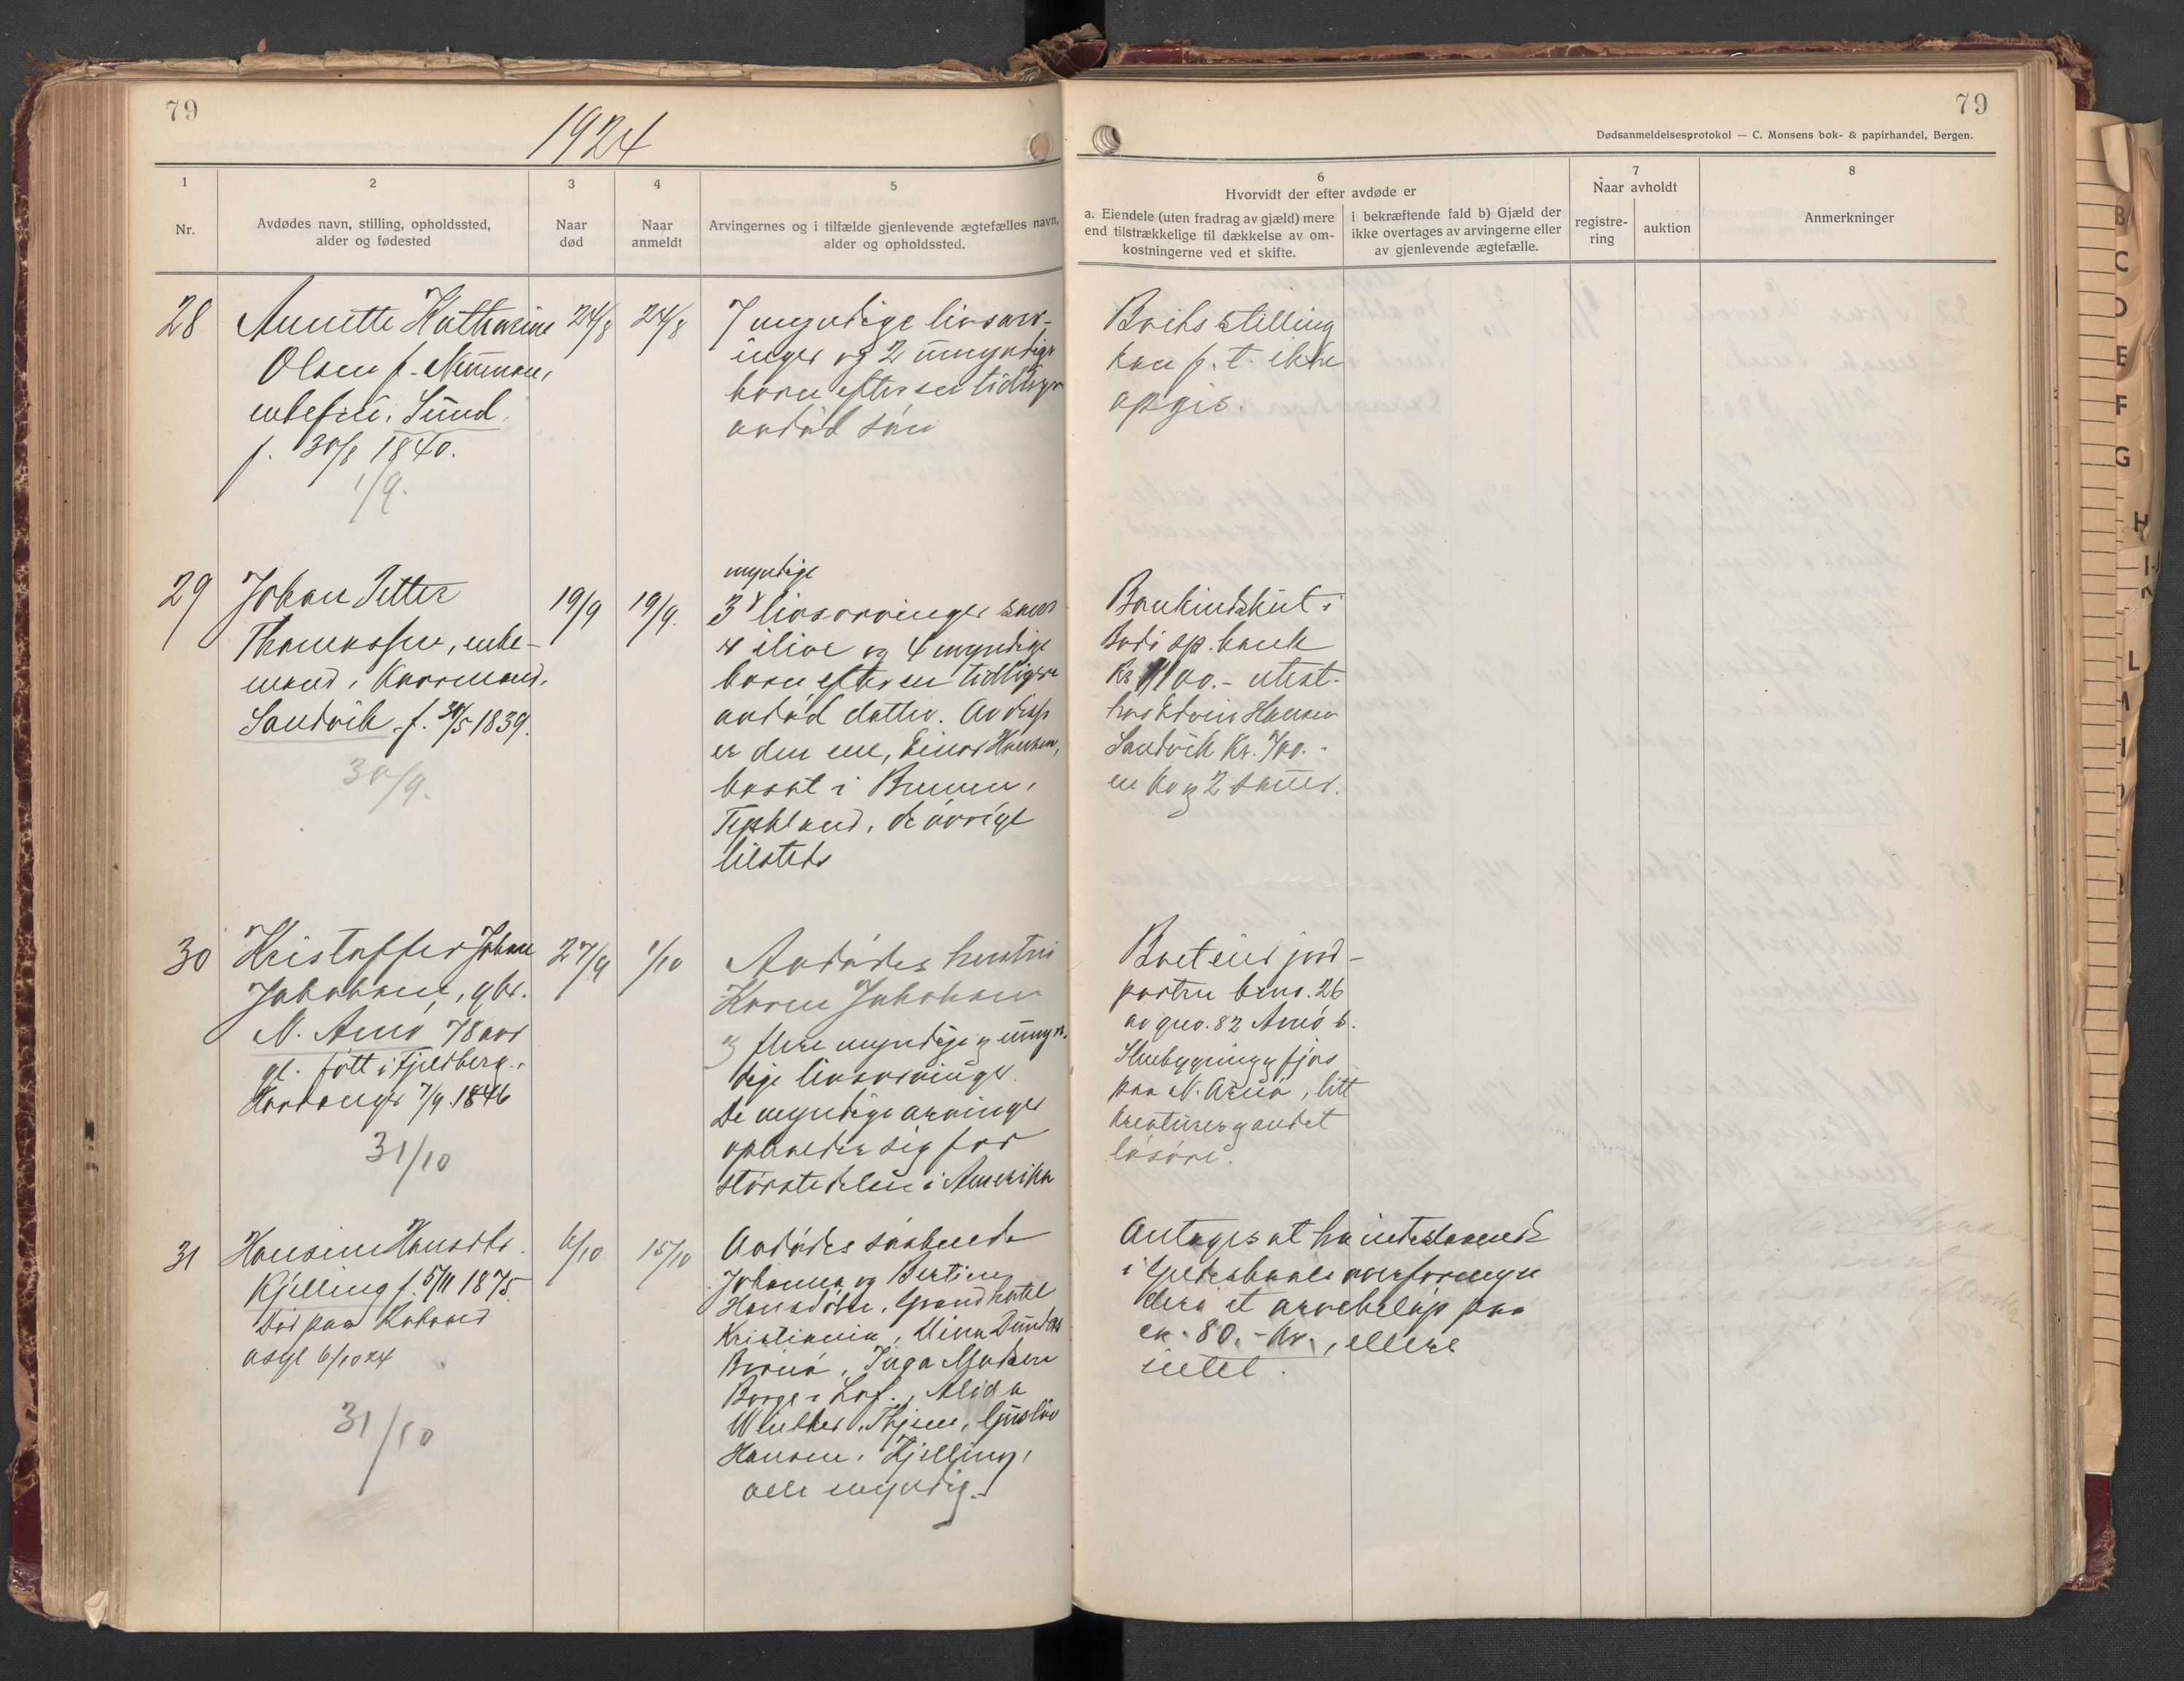 79
1924
1
2
3
4
5
Nr.
Avdødes navn, stilling, opholdssted,
alder og fødested
Naar
død
Naar
anmeldt
Arvingernes og i tilfælde gjenlevende ægtefælles navn,
alder og opholdssted.
28
Annette Katharine
Olsen f. Neuman,
enkefru, Sund.
f. 30/8 1840.
1/9.
24/8
24/8
7 myndige livsarv-
inger og 2 umyndige
barn efter en tidligere
avdød søn
29
Johan Petter
Thomassen, enke-
mand, Kaarmand,
Sandvik. f. 1839.
30/9.
19/9
19/9.
myndige
3 livsarvinger
i live og 4 myndige
barn efter en tidligere
avdød datter. Av disse
er den ene, Einar Hansen,
bosat i Bremen,
Tyskland, de øvrige
tilsteds
30
Kristoffer Johan
Jakobsen, gbr.
N. Arnø 78 aar
gl. født i Fjeldberg,
Hardanger 7/9 1846
31/10
27/9
1/10
Avdødes hustru
Karen Jakobsen
og flere myndige og umyn-
dige livsarvinger.
De myndige arvinger
opholder sig for
størstedelen i Amerika
31
Hansine Hansdtr.
Kjelling f. 5/11 1875.
død paa Rotvold
asyl 6/10 24
31/10
6/10
15/10
Avdødes søskende
Johanna og Bertine
Hansdøtre, Grand hotel
Kristiania, Mina
Inga Madsen
Borge i Lof., Alida
Winther, Gustav
Hansen, Kjelling,
alle myndig.
79
Dødsanmeldelsesprotokol — C. Monsens bok- & papirhandel, Bergen.
6
Hvorvidt der efter avdøde er
a. Eiendele (uten fradrag av gjæld) mere
end tilstrækkelige til dækkelse av om-
kostningerne ved et skifte.
i bekræftende fald b) Gjæld der
ikke overtages av arvingerne eller
av gjenlevende ægtefælle.
7
Naar avholdt
registre-
ring
auktion
8
Anmerkninger
Boets stilling
kan p. t. ikke
opgis.
Bankindskut i
Bodø sp. bank
Kr. 1100.- utest.
hos Edvin Hansen
Sandvik Kr. 700.-
en ko og 2 sauer.
Boet eier jord-
parten bno. 26
av gno. 82 Arnø
Stuebygning og fjøs
paa N. Arnø, litt
kreaturer og andet
løsøre.
Antages at ha indestaaende
i Gildeskaals overformyn-
deri et arvebeløp paa
ca. 80.- kr., ellers
intet.
B
C
D
E
F
G
H
I-J
K
L
M